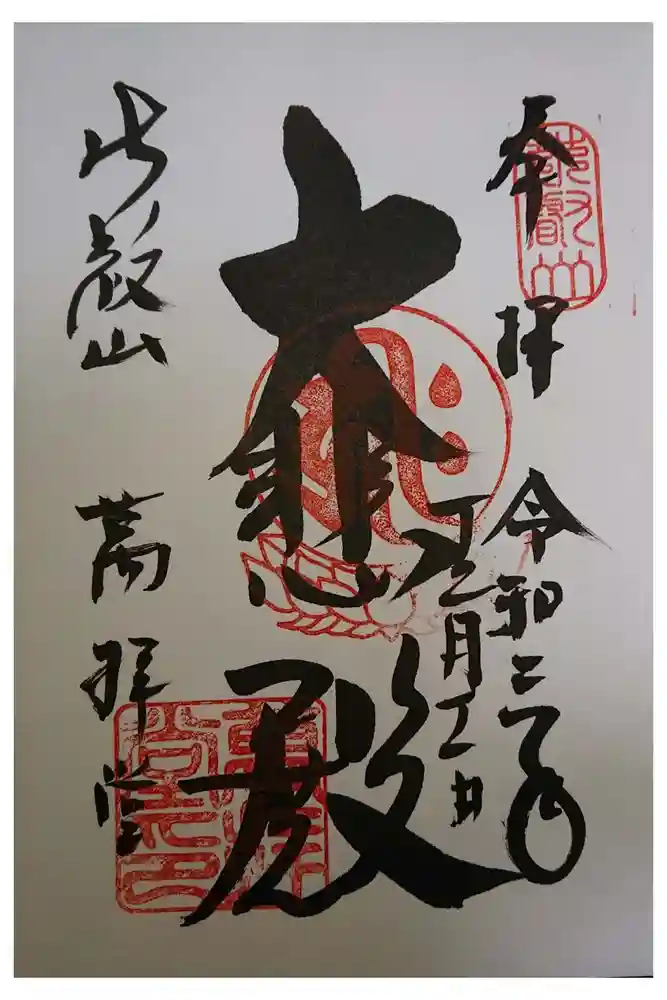 奉拝 令和二年
月 日
大悲殿
比叡山 萬拝堂